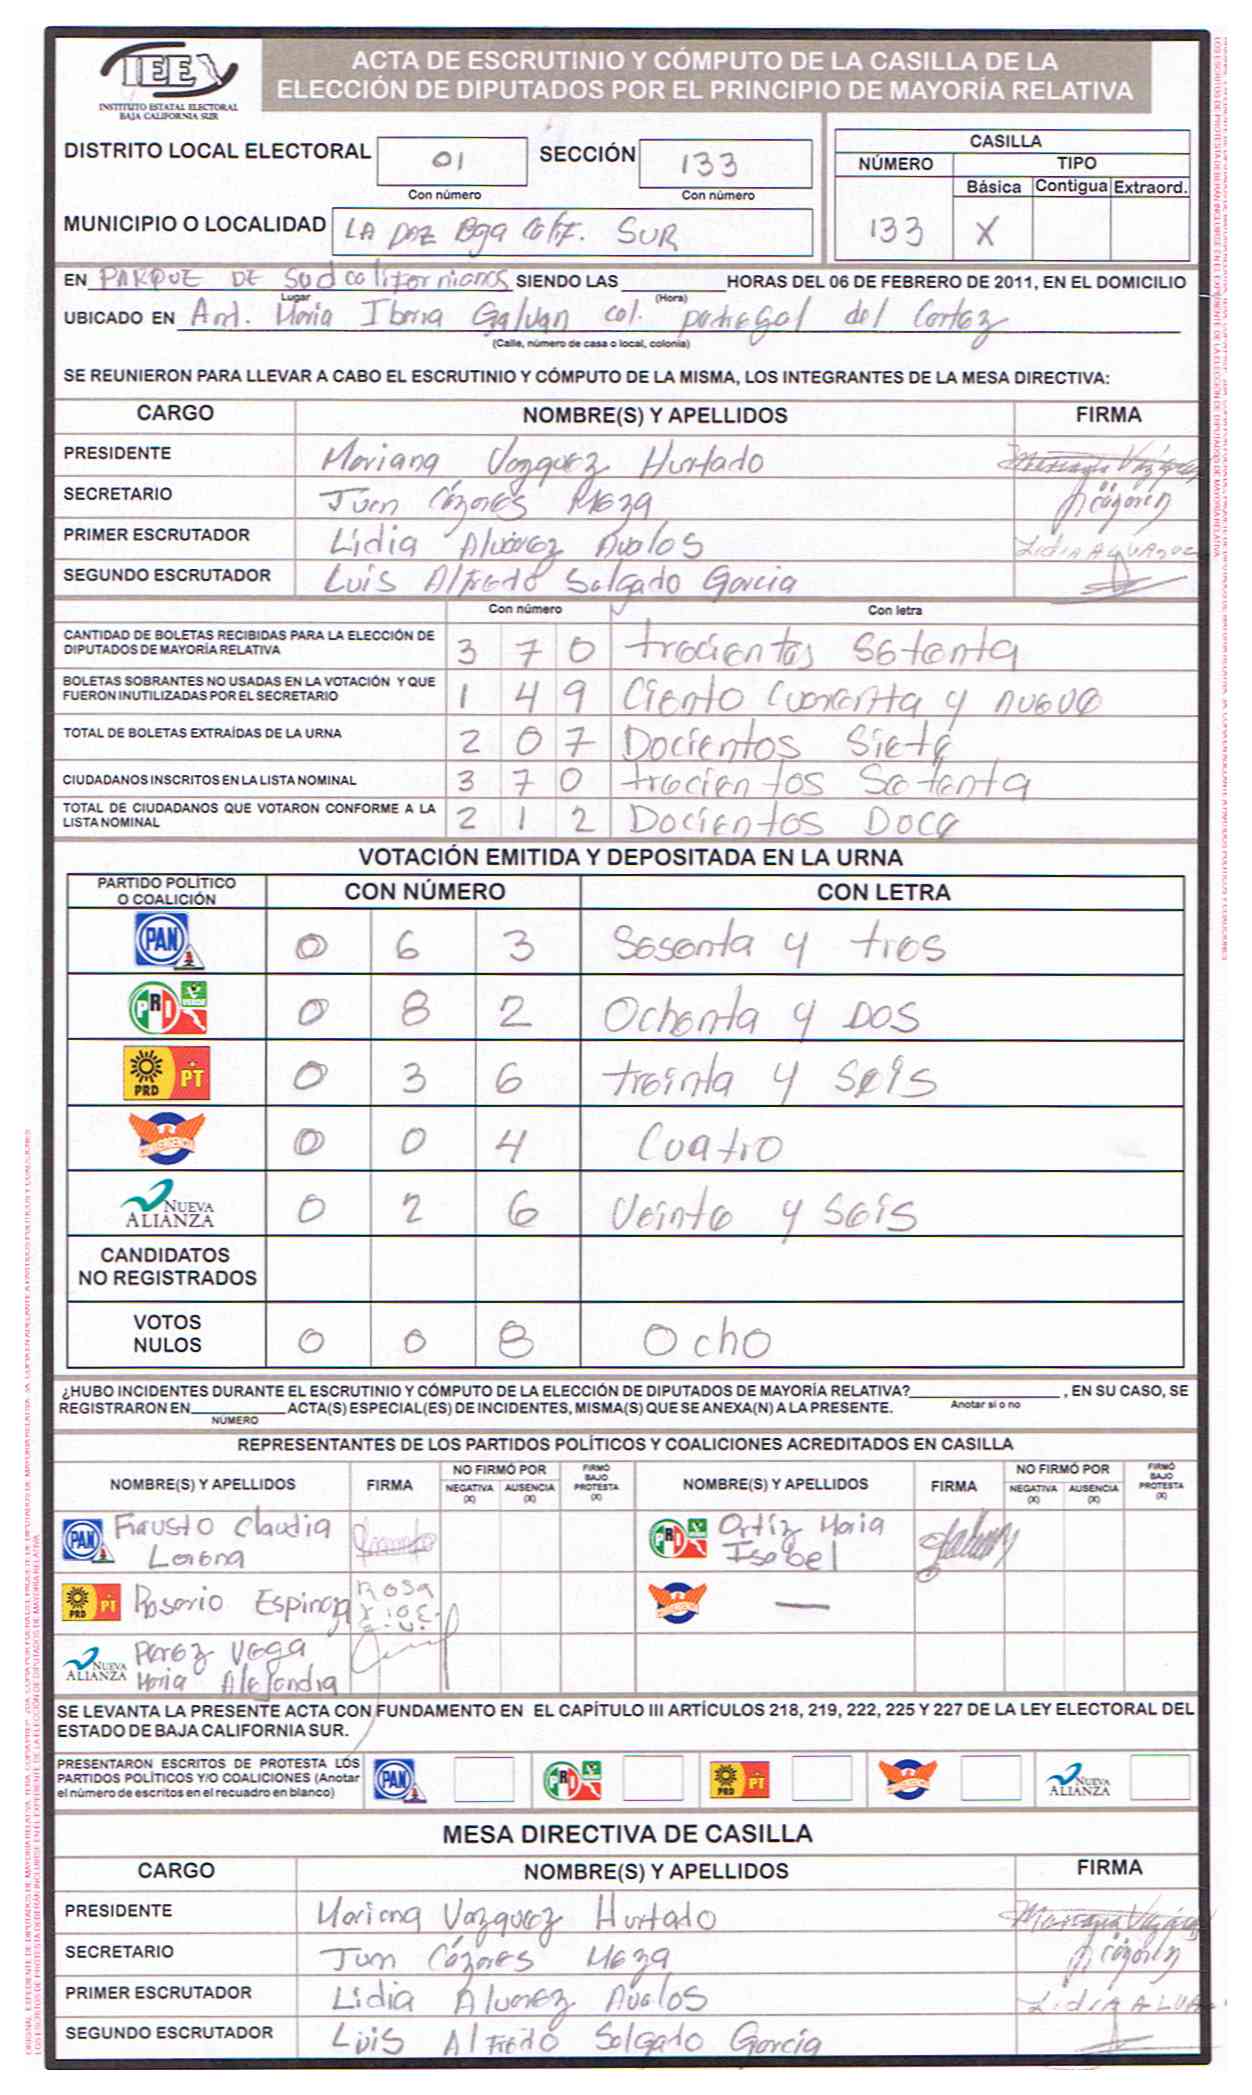 IEE
INSTITUTO ESTATAL ELECTORAL
BAJA CALIFORNIA SUR
ACTA DE ESCRUTINIO Y CÓMPUTO DE LA CASILLA DE LA
ELECCIÓN DE DIPUTADOS POR EL PRINCIPIO DE MAYORÍA RELATIVA
DISTRITO LOCAL ELECTORAL 01 SECCIÓN 133
Con número Con número
CASILLA
NÚMERO TIPO
Básica Contigua Extraord.
133 X
MUNICIPIO O LOCALIDAD LA PAZ Bja Calif. SUR
EN PARQUE DE Sudcalifornianos SIENDO LAS HORAS DEL 06 DE FEBRERO DE 2011, EN EL DOMICILIO
Lugar (Hora)
UBICADO EN And. Maria Ibarra Galvan col. pedregal del Cortez
(Calle, número de casa o local, colonia)
SE REUNIERON PARA LLEVAR A CABO EL ESCRUTINIO Y CÓMPUTO DE LA MISMA, LOS INTEGRANTES DE LA MESA DIRECTIVA:
CARGO NOMBRE(S) Y APELLIDOS FIRMA
PRESIDENTE Mariana Vazquez Hurtado
SECRETARIO Juan Cázares Meza
PRIMER ESCRUTADOR Lidia Alvarez Avalos
SEGUNDO ESCRUTADOR Luis Alfredo Salgado Garcia
Con número Con letra
CANTIDAD DE BOLETAS RECIBIDAS PARA LA ELECCIÓN DE
DIPUTADOS DE MAYORÍA RELATIVA 3 7 0 trecientos Setenta
BOLETAS SOBRANTES NO USADAS EN LA VOTACIÓN Y QUE
FUERON INUTILIZADAS POR EL SECRETARIO 1 4 9 Ciento Cuarenta y nueve
TOTAL DE BOLETAS EXTRAÍDAS DE LA URNA 2 0 7 Docientos Siete
CIUDADANOS INSCRITOS EN LA LISTA NOMINAL 3 7 0 trecientos Setenta
TOTAL DE CIUDADANOS QUE VOTARON CONFORME A LA
LISTA NOMINAL 2 1 2 Docientos Doce
VOTACIÓN EMITIDA Y DEPOSITADA EN LA URNA
PARTIDO POLÍTICO
O COALICIÓN CON NÚMERO CON LETRA
PAN 0 6 3 Sesenta y tres
PRI VERDE 0 8 2 Ochenta y Dos
PRD PT 0 3 6 treinta y Seis
CONVERGENCIA 0 0 4 Cuatro
NUEVA ALIANZA 0 2 6 Veinte y Seis
CANDIDATOS
NO REGISTRADOS
VOTOS
NULOS 0 0 8 Ocho
¿HUBO INCIDENTES DURANTE EL ESCRUTINIO Y CÓMPUTO DE LA ELECCIÓN DE DIPUTADOS DE MAYORÍA RELATIVA? , EN SU CASO, SE
Anotar si o no
REGISTRARON EN ACTA(S) ESPECIAL(ES) DE INCIDENTES, MISMA(S) QUE SE ANEXA(N) A LA PRESENTE.
NÚMERO
REPRESENTANTES DE LOS PARTIDOS POLÍTICOS Y COALICIONES ACREDITADOS EN CASILLA
NOMBRE(S) Y APELLIDOS FIRMA NO FIRMÓ POR NEGATIVA (X) AUSENCIA (X) FIRMÓ BAJO PROTESTA (X) NOMBRE(S) Y APELLIDOS FIRMA NO FIRMÓ POR NEGATIVA (X) AUSENCIA (X) FIRMÓ BAJO PROTESTA (X)
PAN Frausto Claudia
Lorena
PRI VERDE Ortiz Maria
Isabel
PRD PT Rosario Espinoza
CONVERGENCIA —
NUEVA ALIANZA Perez Vega
Maria Alejandra
SE LEVANTA LA PRESENTE ACTA CON FUNDAMENTO EN EL CAPÍTULO III ARTÍCULOS 218, 219, 222, 225 Y 227 DE LA LEY ELECTORAL DEL
ESTADO DE BAJA CALIFORNIA SUR.
PRESENTARON ESCRITOS DE PROTESTA LOS
PARTIDOS POLÍTICOS Y/O COALICIONES (Anotar
el número de escritos en el recuadro en blanco)
PAN PRI VERDE PRD PT CONVERGENCIA NUEVA ALIANZA
MESA DIRECTIVA DE CASILLA
CARGO NOMBRE(S) Y APELLIDOS FIRMA
PRESIDENTE Mariana Vazquez Hurtado
SECRETARIO Juan Cázares Meza
PRIMER ESCRUTADOR Lidia Alvarez Avalos
SEGUNDO ESCRUTADOR Luis Alfredo Salgado García